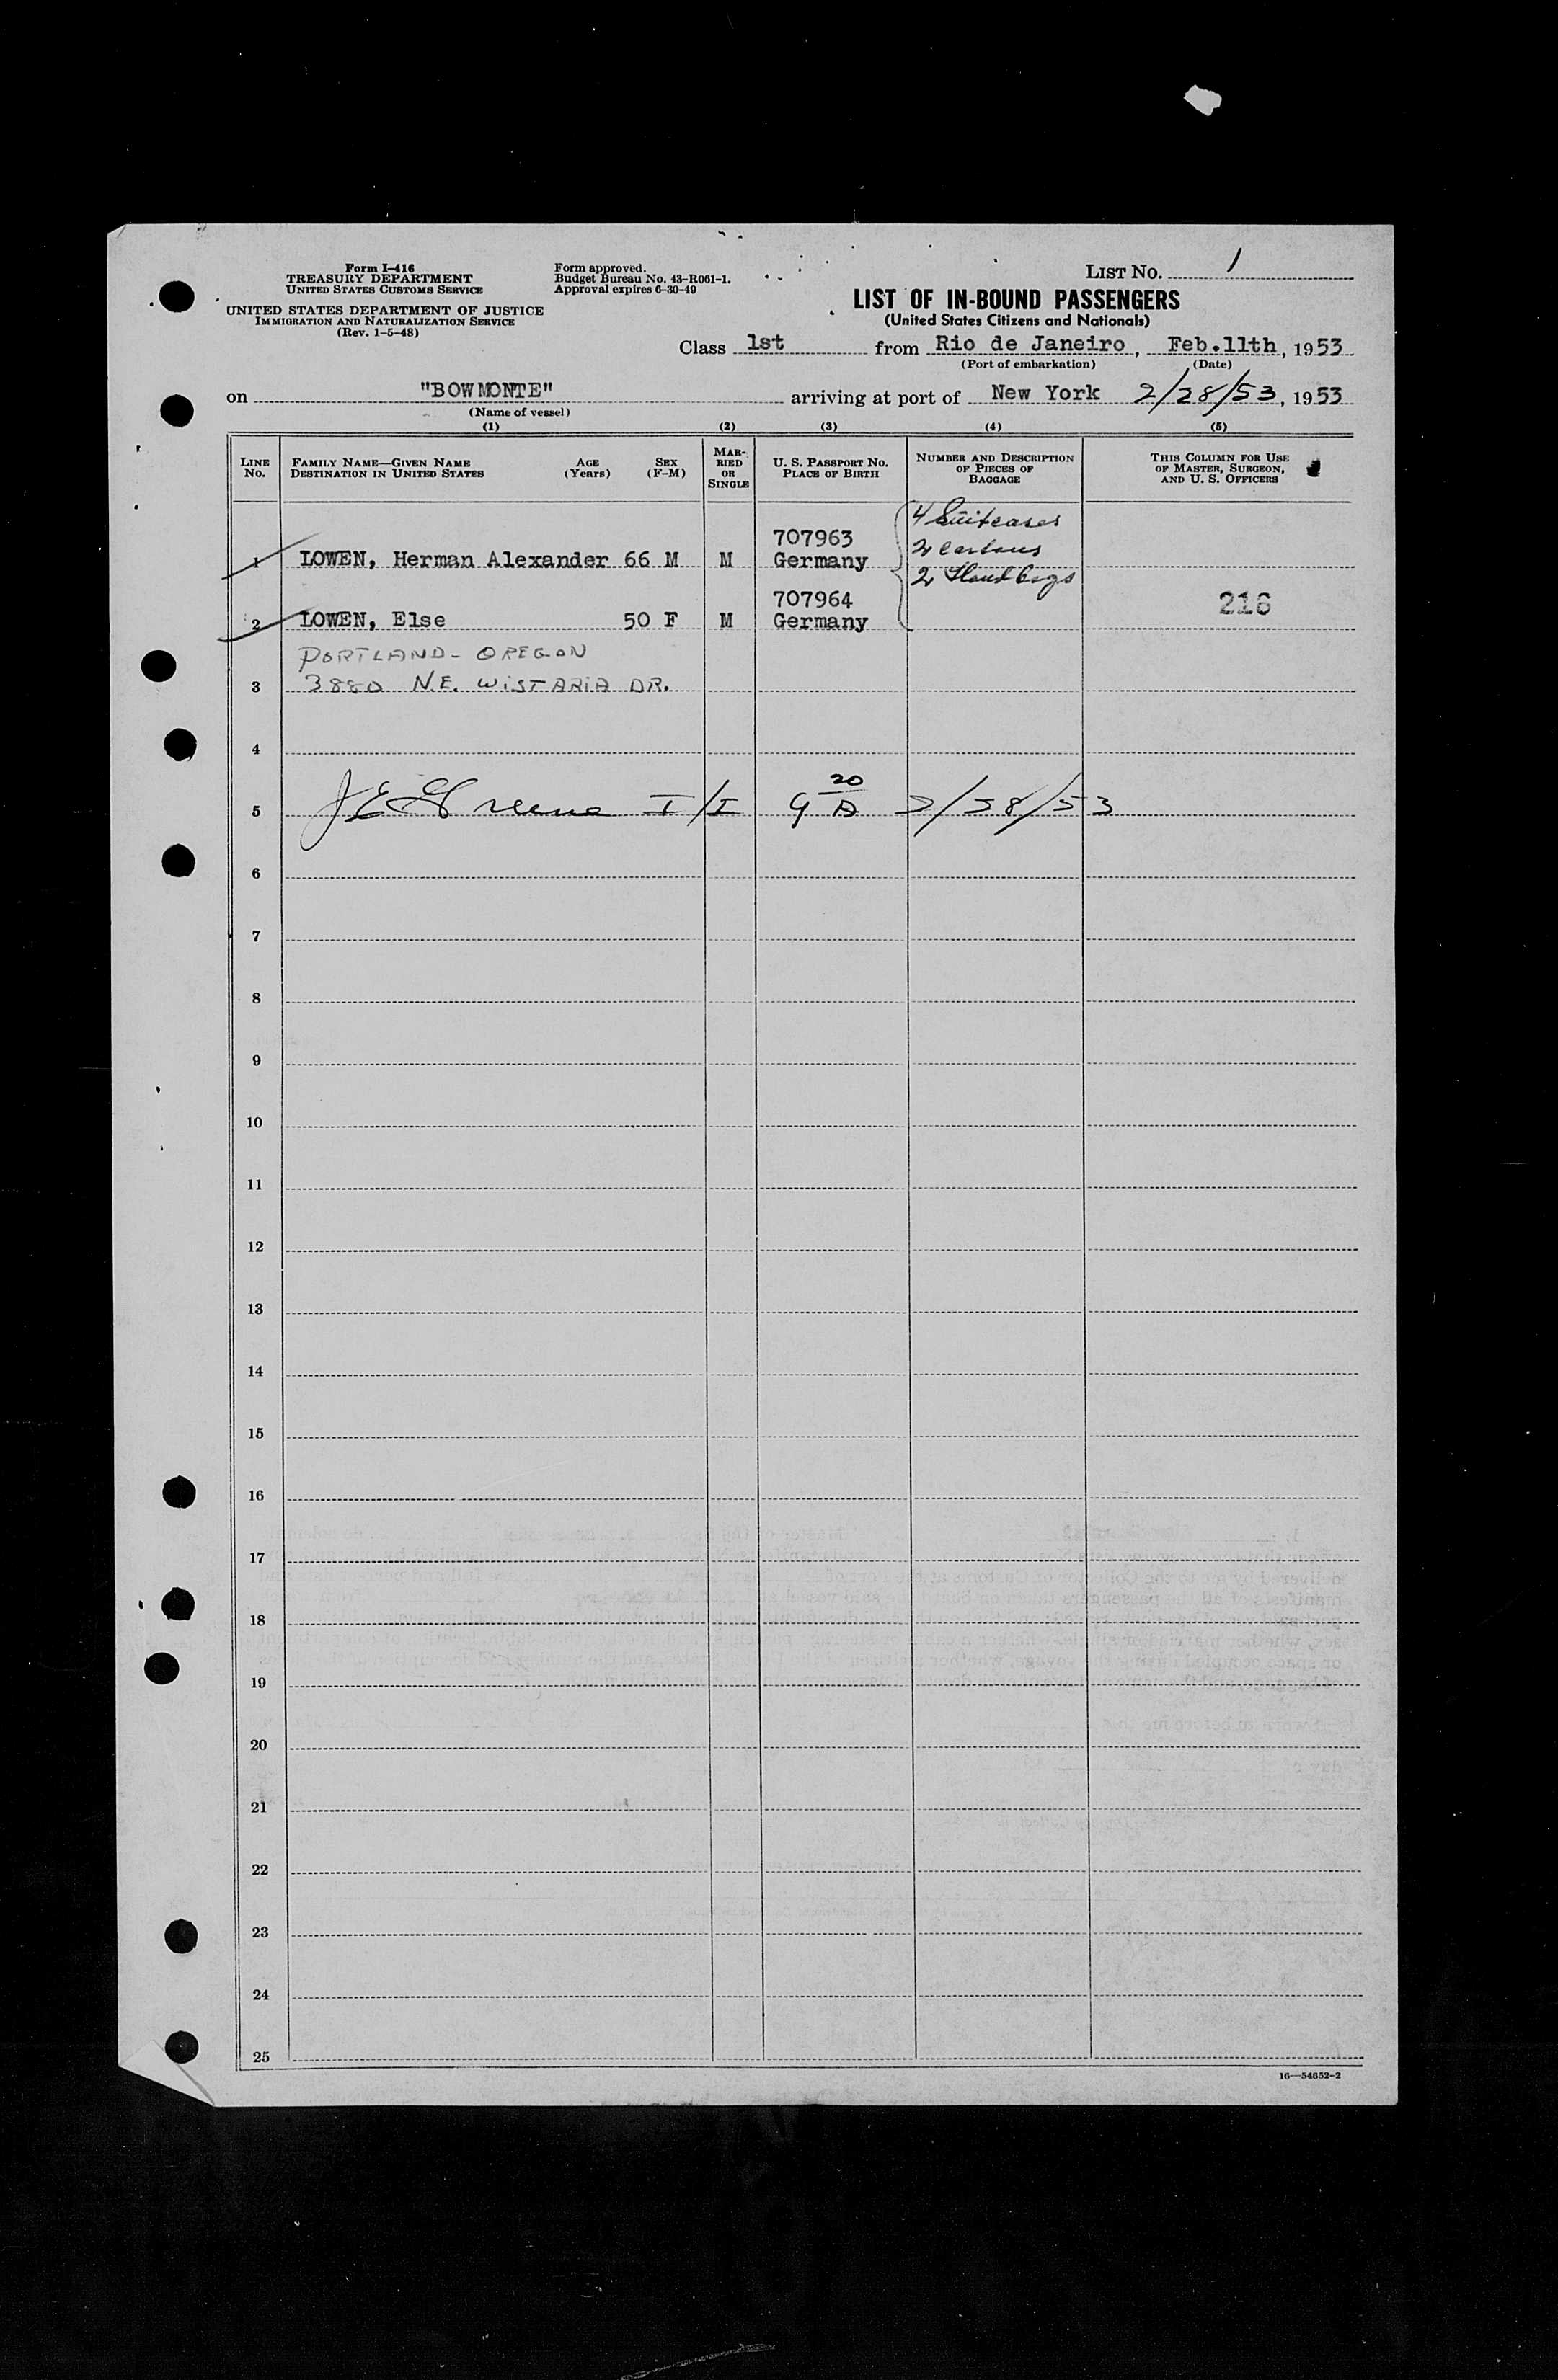 Form I-416
TREASURY DEPARTMENT
UNITED STATES CUSTOMS SERVICE
UNITED STATES DEPARTMENT OF JUSTICE
IMMIGRATION AND NATURALIZATION SERVICE
(Rev. 1-5-48)
Form approved.
Budget Bureau No. 43-R061-1.
Approval expires 6-30-49
LIST NO. 1
LIST OF IN-BOUND PASSENGERS
(United States Citizens and Nationals)
Class 1st from Rio de Janeiro, Feb.11th, 1953
(Port of embarkation) (Date)
on "BOWMONTE" arriving at port of New York 2/28/53, 1953
(Name of vessel)
(1) (2) (3) (4) (5)
LINE NO.
FAMILY NAME—GIVEN NAME AGE SEX
DESTINATION IN UNITED STATES (Years) (F-M)
MARRIED OR SINGLE
U. S. PASSPORT NO.
PLACE OF BIRTH
NUMBER AND DESCRIPTION
OF PIECES OF
BAGGAGE
THIS COLUMN FOR USE
OF MASTER, SURGEON,
AND U. S. OFFICERS
4 Suitcases
707963
2 Cartons
1 LOWEN, Herman Alexander 66 M M Germany
2 Hand bags
707964
216
2 LOWEN, Else 50 F M Germany
PORTLAND - OREGON
3 3880 N.E. WISTARIA DR.
4
5 J E Greene I/I 9 20 A 2/28/53
6
7
8
9
10
11
12
13
14
15
16
17
18
19
20
21
22
23
24
25
16—54652-2